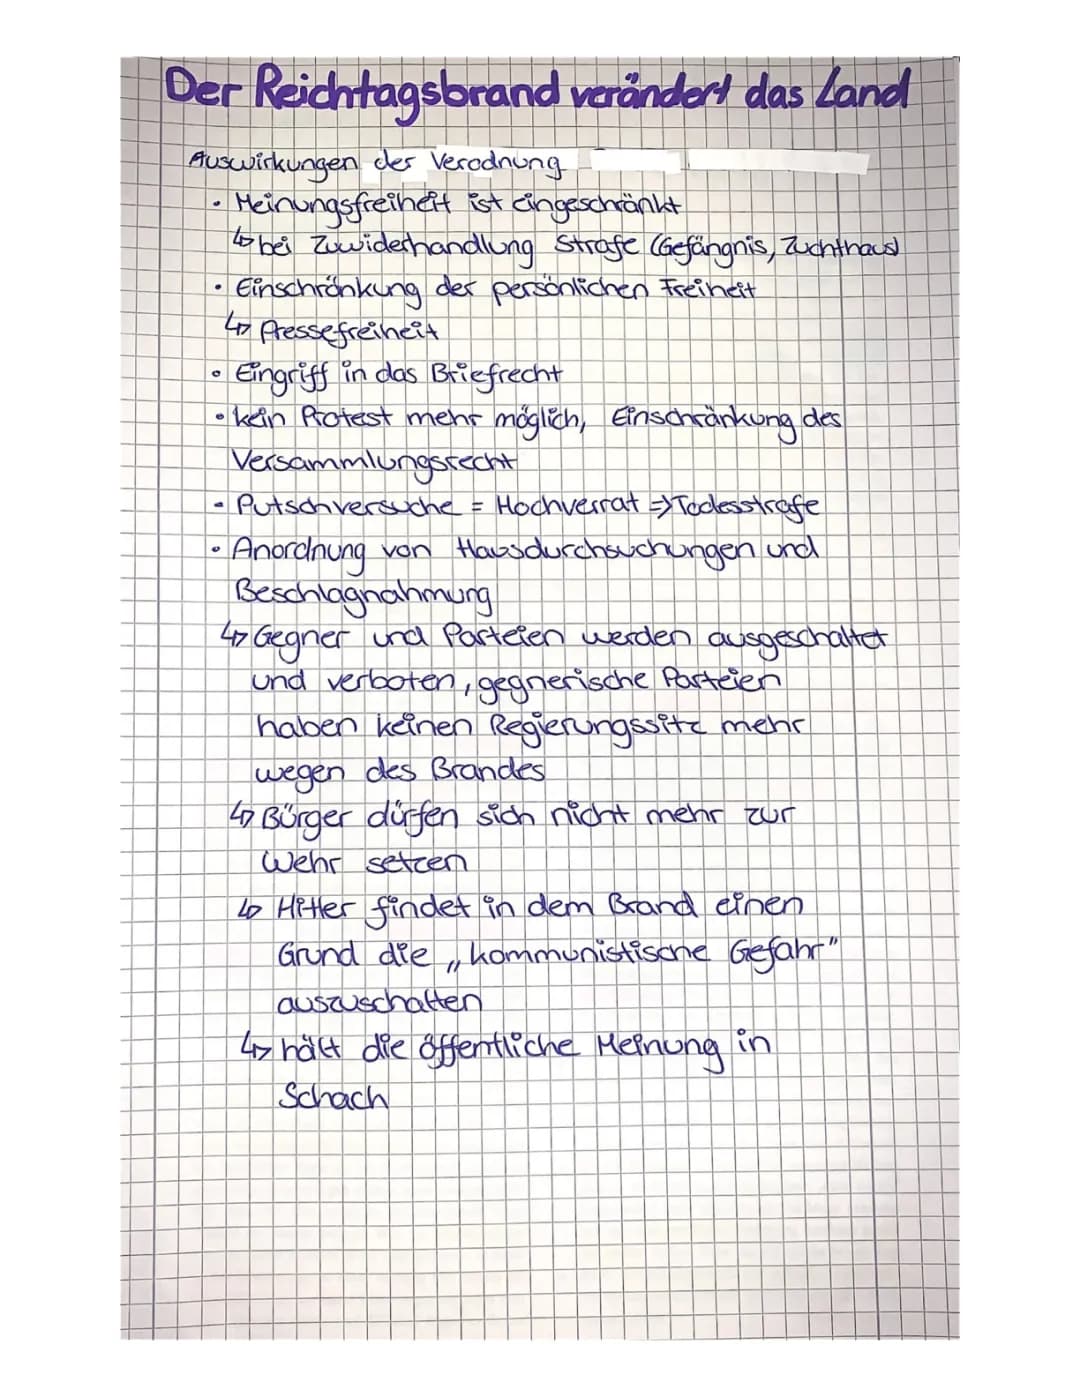 Der Reichtagsbrand verändert das Land
Auswirkungen der Verodnung
• Meinungsfreiheit ist eingeschränkt
↳ bei Zuwiderhandlung Strafe (Gefängnis, Zuchthaus)
• Einschränkung der persönlichen Freiheit
↳ Pressefreiheit
• Eingriff in das Briefrecht
• kein Protest mehr möglich, Einschränkung des
Versammlungsrecht
• Putschversuche = Hochverrat => Todesstrafe
• Anordnung von Hausdurchsuchungen und
Beschlagnahmung
↳ Gegner und Parteien werden ausgeschaltet
und verboten, gegnerische Parteien
haben keinen Regierungssitz mehr
wegen des Brandes
↳ Bürger dürfen sich nicht mehr zur
Wehr setzen
↳ Hitler findet in dem Brand einen
Grund die „kommunistische Gefahr"
auszuschalten
↳ hält die öffentliche Meinung in
Schach